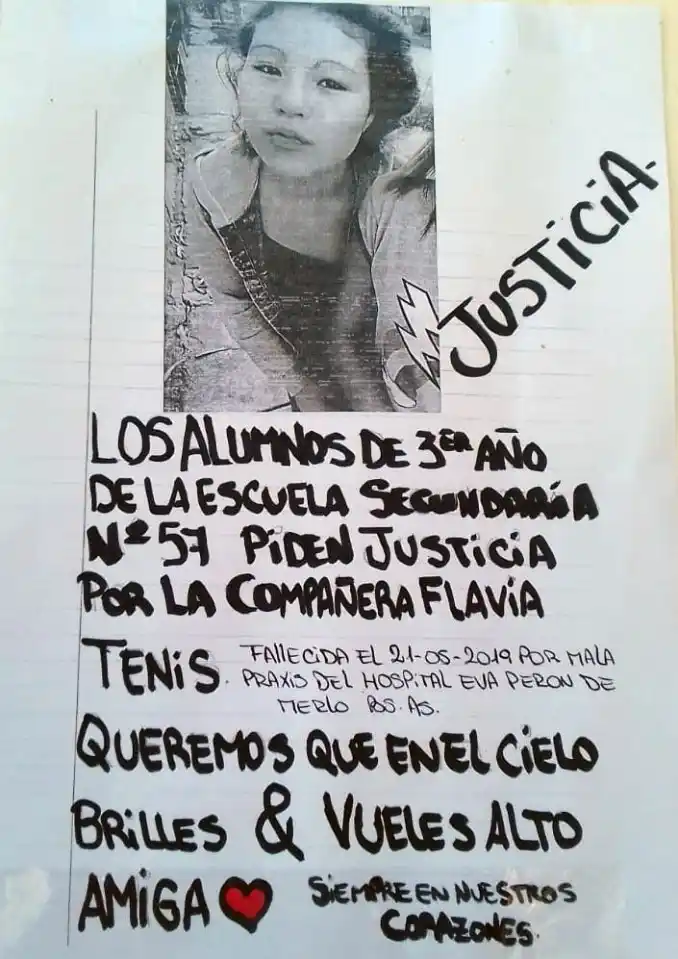 JUSTICIA.
LOS ALUMNOS DE 3ER AÑO
DE LA ESCUELA SECUNDARIA
Nº 57 PIDEN JUSTICIA
POR LA COMPAÑERA FLAVIA
TENIS. FALLECIDA EL 21-05-2019 POR MALA
PRAXIS DEL HOSPITAL EVA PERON DE
MERLO BS. AS.
QUEREMOS QUE EN EL CIELO
BRILLES & VUELES ALTO
AMIGA SIEMPRE EN NUESTROS
CORAZONES.